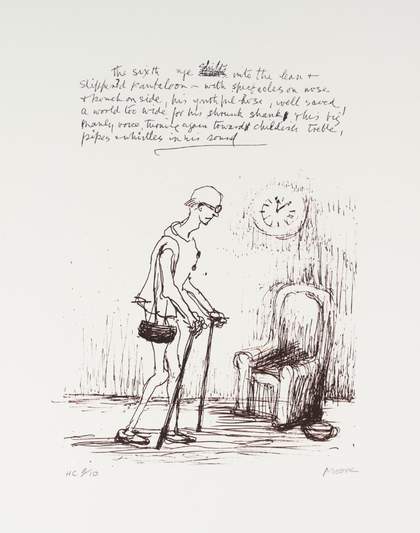 the sixth age shifts into the lean &
slipper'd pantaloon - with spectacles on nose
& pouch on side, his youthful hose, well saved,
a world too wide for his shrunk shank, & his big
manly voice, turning again toward childish treble,
pipes & whistles in his sound
HC 8/10
Moore